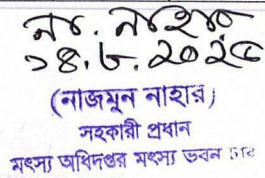 না. নাহার
১৪.৮.২০২৫
(নাজমুন নাহার)
সহকারী প্রধান
মৎস্য অধিদপ্তর মৎস্য ভবন ঢাকা